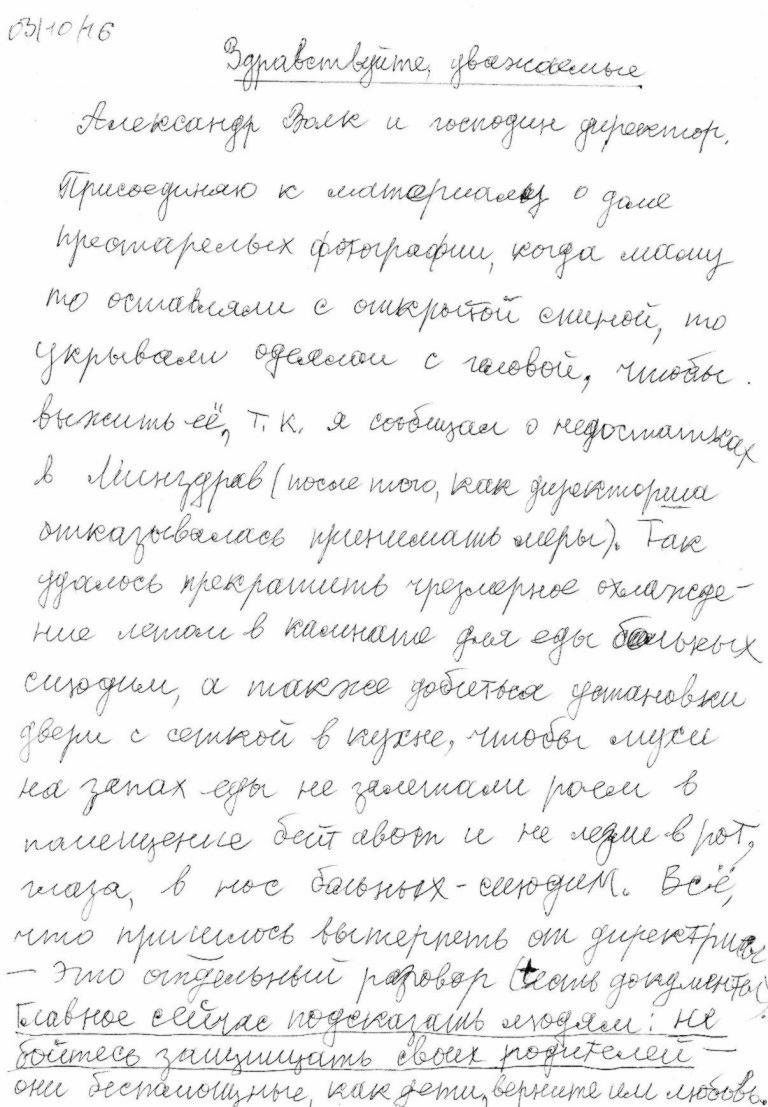 03/10/16
Здравствуйте, уважаемые
Александр Волк и господин директор.
Присоединяю к материалу о доме
престарелых фотографии, когда маму
то оставляли с открытой спиной, то
укрывали одеялом с головой, чтобы
выжить её, т.к. я сообщал о недостатках
в Минздрав (после того, как директорша
отказывалась принимать меры). Так
удалось прекратить чрезмерное охлажде-
ние летом в комнате для еды больных
сиюдим, а также добиться установки
двери с сеткой в кухне, чтобы мухи
на запах еды не залетали роем в
помещение бейт авот и не лезли в рот,
глаза, в нос больных-сиюдим. Всё,
что пришлось вытерпеть от директрисы
— это отдельный разговор (есть документы).
Главное сейчас подсказать людям: не
бойтесь защищать своих родителей —
они беспомощные, как дети, верните им любовь.